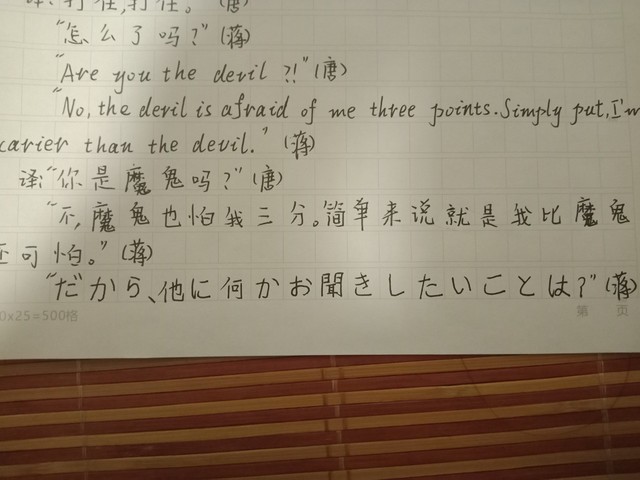 打住,打住。(唐)
"怎么了吗?"(蒋)
"Are you the devil ?!"(唐)
"No, the devil is afraid of me three points. Simply put, I'm
carier than the devil."(蒋)
译:"你是魔鬼吗?"(唐)
"不,魔鬼也怕我三分。简单来说就是我比魔鬼
还可怕。"(蒋)
"だから、他に何かお聞きしたいことは?"(蒋)
0x25=500格
第 页